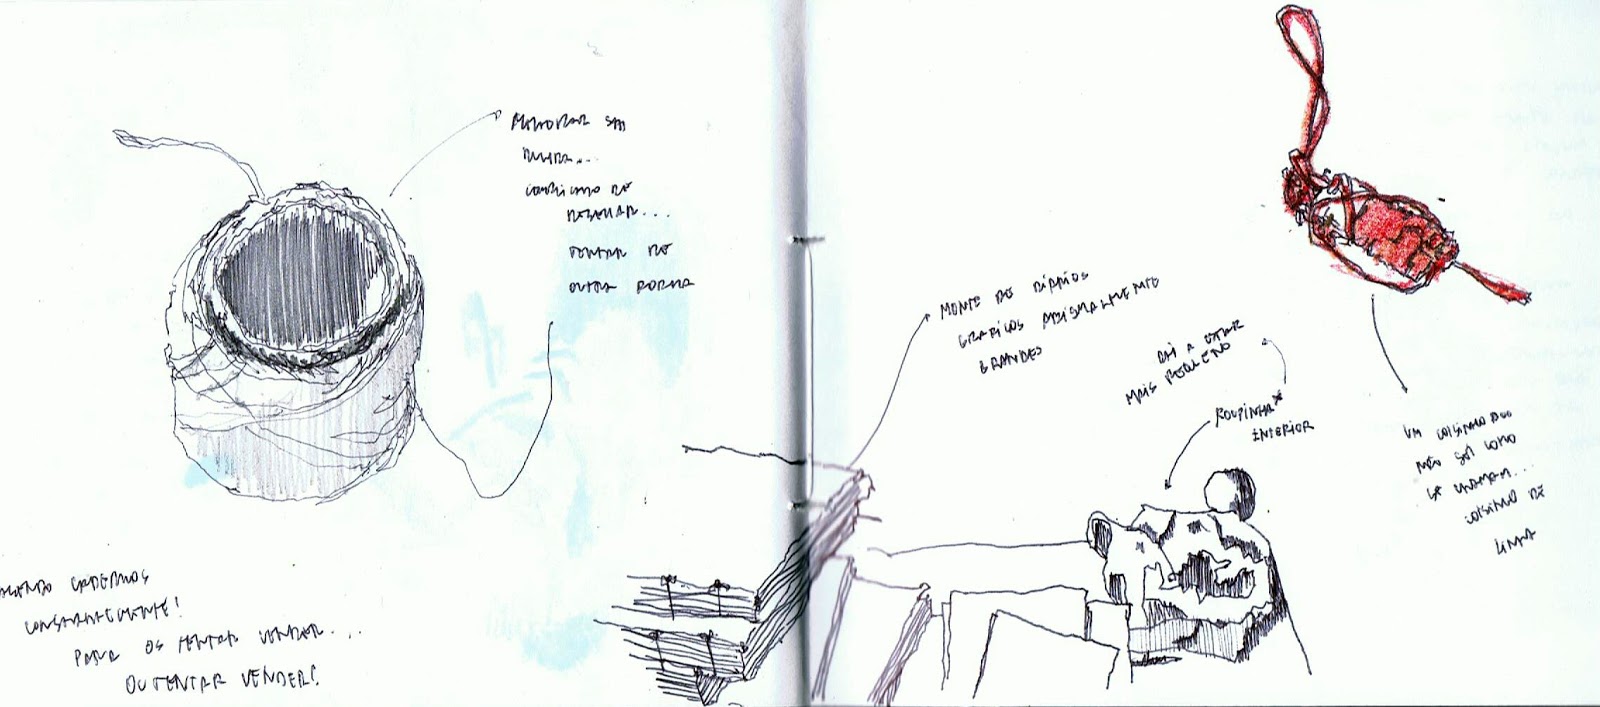 MELHORAR
COMPLICADO DE
DESENHAR...
TENTAR DE
OUTRA FORMA
FAZENDO CADERNOS
CONSTANTEMENTE!
PARA OS TENTAR VENDER...
OU TENTAR VENDER!
MONTE DE DIÁRIOS
GRÁFICOS ABISMALMENTE
GRANDES
DAÍ A ESTAR
MAIS PEQUENO
ROUPINHA*
INTERIOR
UM COISINHO QUE
NÃO SEI COMO
SE CHAMAM...
COISINHO DE